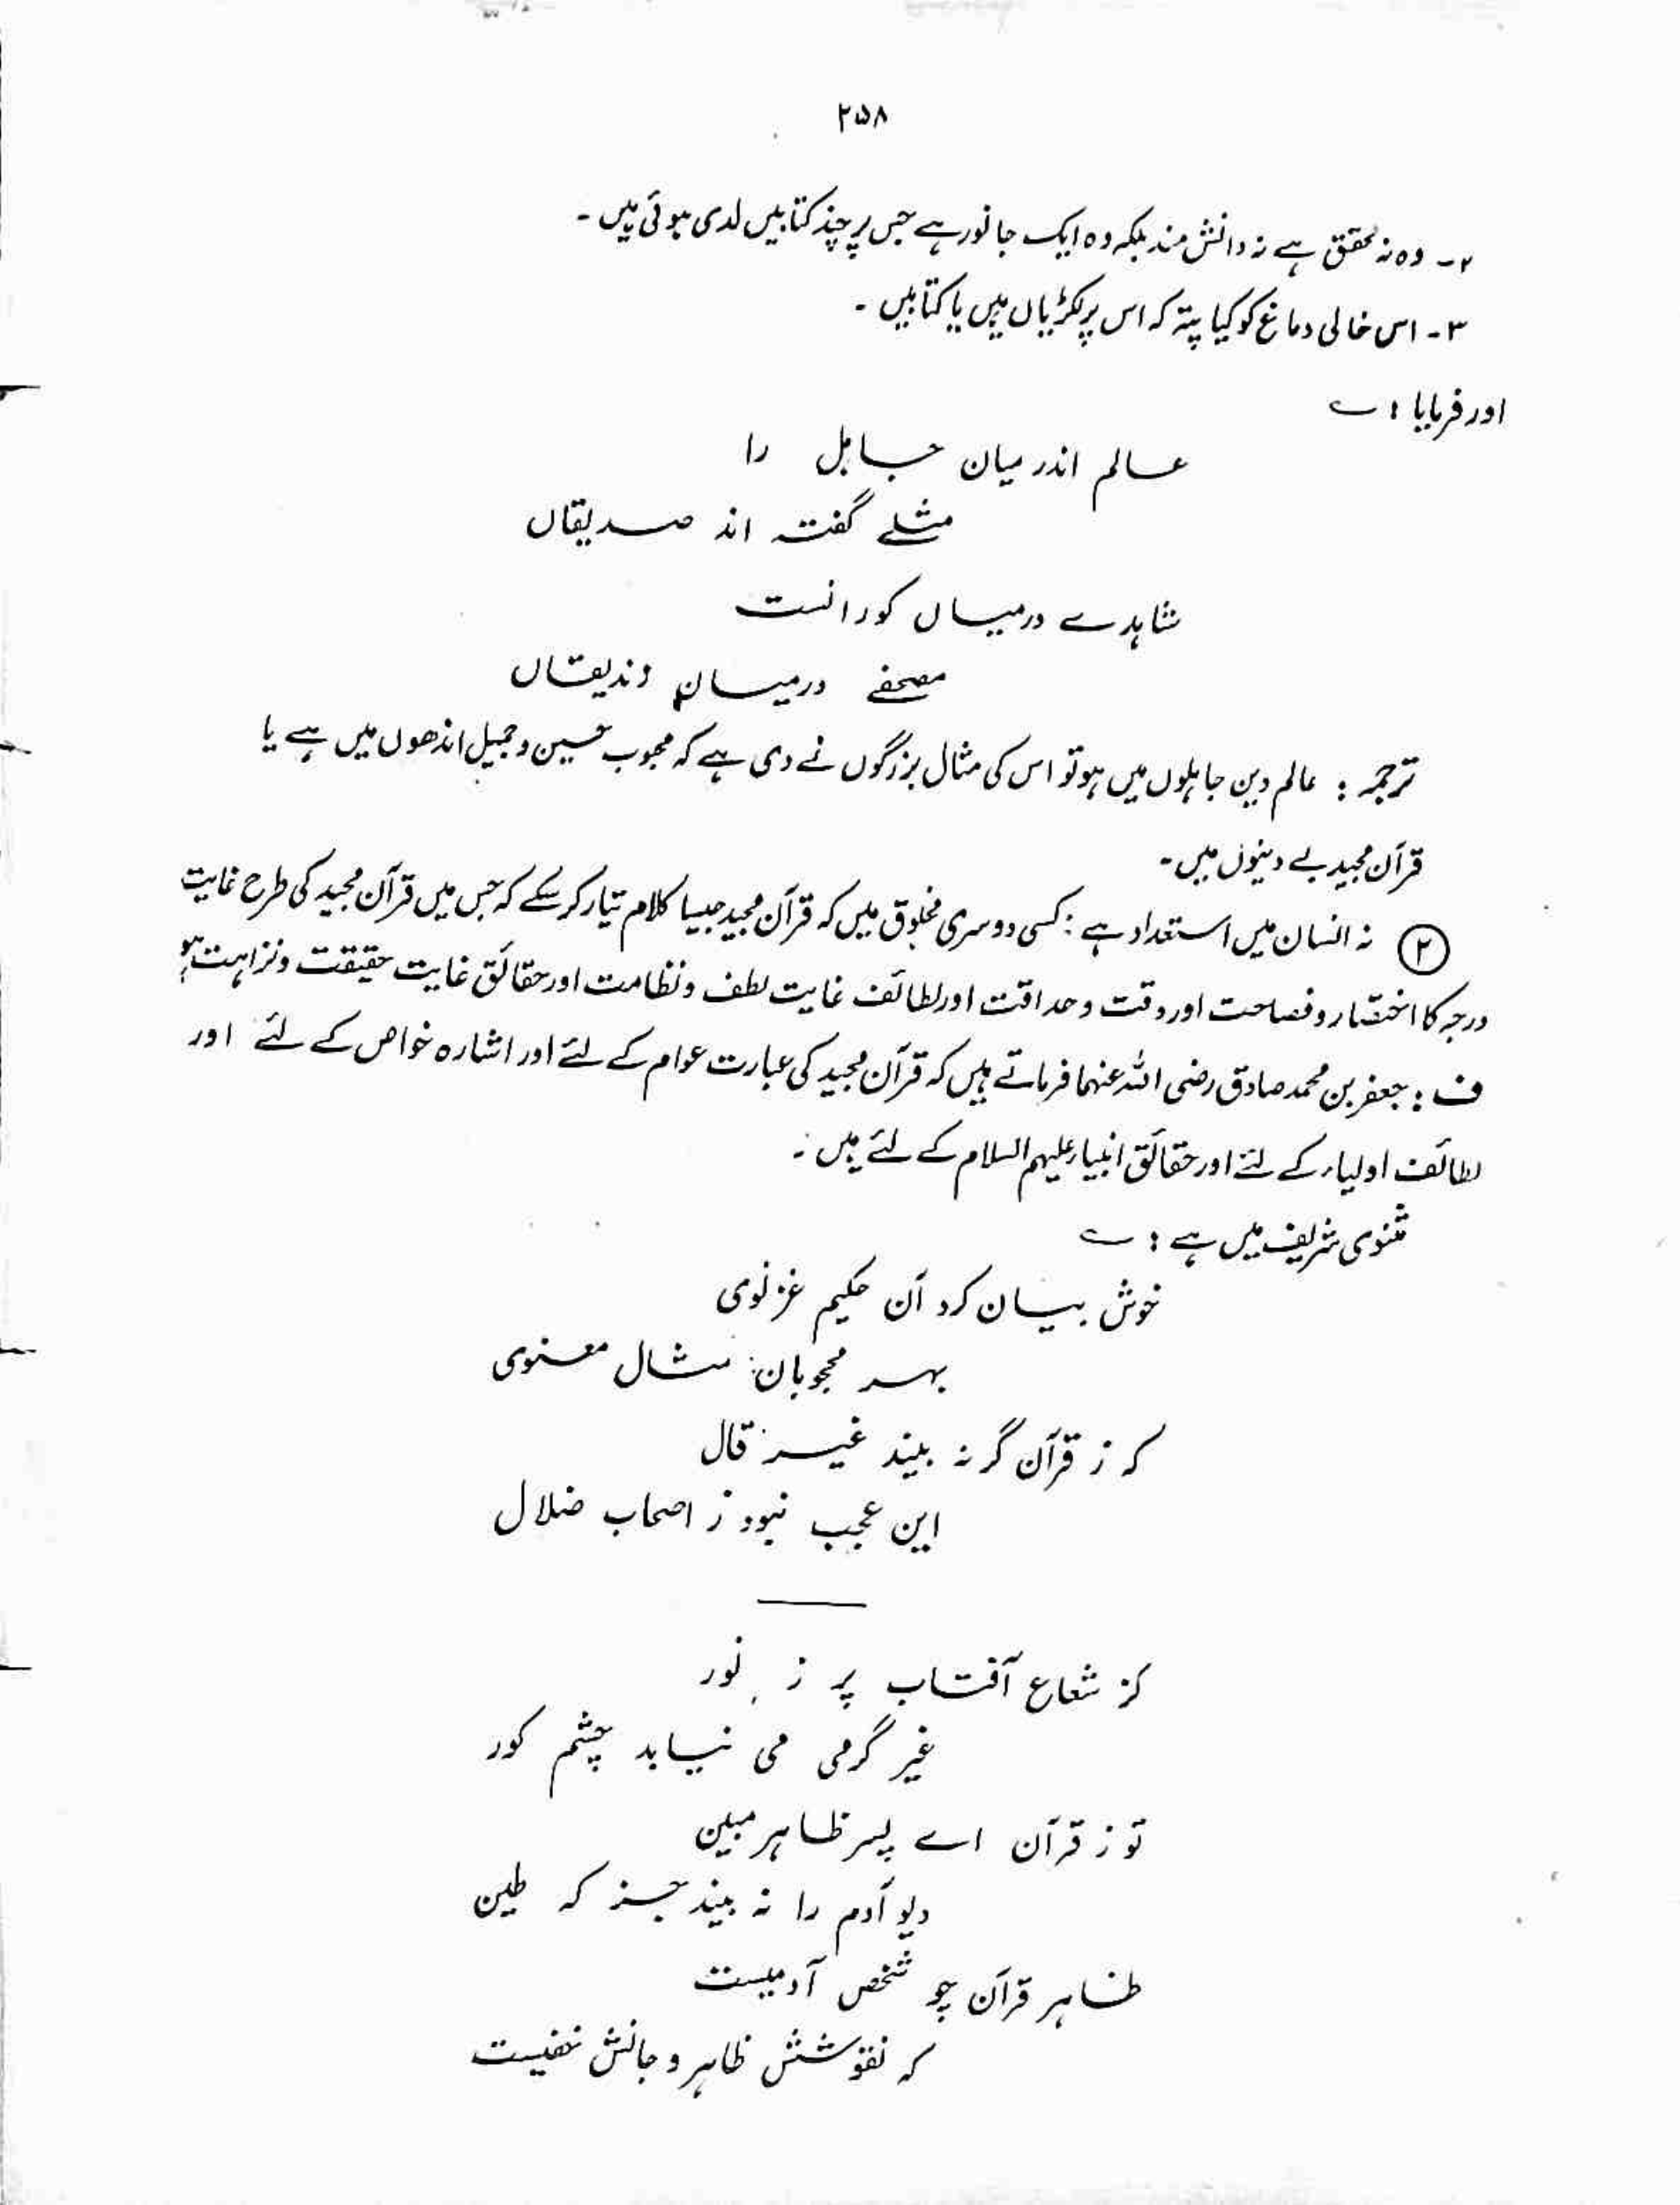 ۲۵۸
۲۔ وہ نہ محقق ہے نہ دانش مند بلکہ وہ ایک جانور ہے جس پر چند کتابیں لدی ہوئی ہیں ۔
۳۔ اس خالی دماغ کو کیا پتہ کہ اس پر لکڑیاں ہیں یا کتابیں ۔
اور فرمایا : ؎
عالم اندر میان جاہل را
مثلے گفتہ اند صدیقاں
شاہدے درمیاں کورانست
مصحفے درمیان زندیقاں
ترجمہ : عالم دین جاہلوں میں ہو تو اس کی مثال بزرگوں نے دی ہے کہ محبوب حسین و جمیل اندھوں میں ہے یا
قرآن مجید بے دینوں میں۔
۲ نہ انسان میں استعداد ہے : کسی دوسری مخلوق میں کہ قرآن مجید جیسا کلام تیار کر سکے کہ جس میں قرآن مجید کی طرح غایت
درجہ کا اختصار و فصاحت اور وقت و حداقت اور لطائف غایت لطف و نظامت اور حقائق غایت حقیقت و نزاہت ہو
ف : جعفر بن محمد صادق رضی اللہ عنہما فرماتے ہیں کہ قرآن مجید کی عبارت عوام کے لئے اور اشارہ خواص کے لئے اور
لطائف اولیاء کے لئے اور حقائق انبیاء علیہم السلام کے لئے ہیں ۔
مثنوی شریف میں ہے : ؎
خوش بیان کرد آن حکیم غزنوی
بہر محجوبان مثال معنوی
کہ ز قرآن گر نہ بیند غیر قال
این عجب نبود ز اصحاب ضلال
کز شعاع آفتاب پر ز نور
غیر گرمی می نیابد چشم کور
تو ز قرآن اے پسر ظاہر مبین
دیو آدم را نہ بیند جز کہ طین
ظاہر قرآن چو شخص آدمیست
کہ نقوشش ظاہر و جانش خفیست